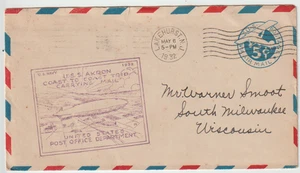 U.S.S. AKRON
COAST TO COAST TRIP
CARRYING MAIL
UNITED STATES
POST OFFICE DEPARTMENT
LAKEHURST, N.J.
MAY 8
5-PM
1932
5¢
AIR MAIL
Mr. Warner Smoot
South Milwaukee
Wisconsin